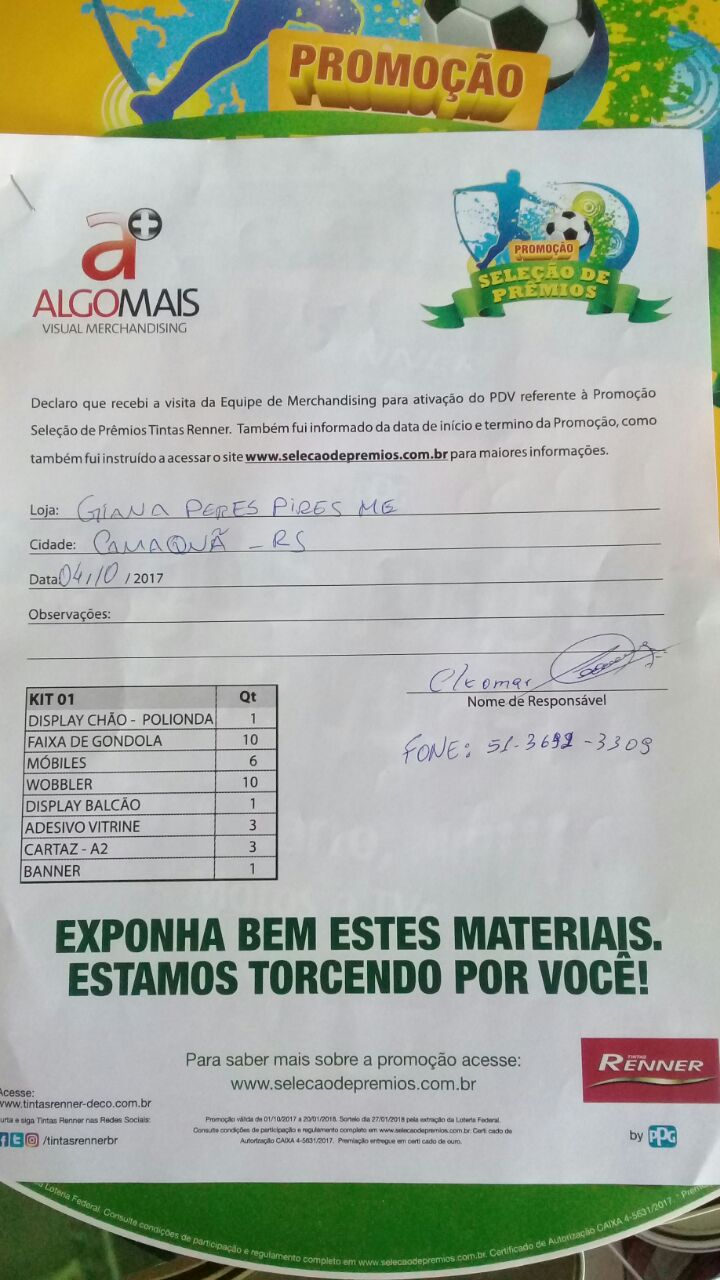 PROMOÇÃO
a+
ALGOMAIS
VISUAL MERCHANDISING
PROMOÇÃO
SELEÇÃO DE
PRÊMIOS
Declaro que recebi a visita da Equipe de Merchandising para ativação do PDV referente à Promoção
Seleção de Prêmios Tintas Renner. Também fui informado da data de início e termino da Promoção, como
também fui instruído a acessar o site www.selecaodepremios.com.br para maiores informações.
Loja: GIANA PERES PIRES ME
Cidade: CAMAQUÃ - RS
Data: 04/10 / 2017
Observações:
Cleomar
Nome de Responsável
FONE: 51-3692-3309
KIT 01 Qt
DISPLAY CHÃO - POLIONDA 1
FAIXA DE GONDOLA 10
MÓBILES 6
WOBBLER 10
DISPLAY BALCÃO 1
ADESIVO VITRINE 3
CARTAZ - A2 3
BANNER 1
EXPONHA BEM ESTES MATERIAIS.
ESTAMOS TORCENDO POR VOCÊ!
Para saber mais sobre a promoção acesse:
www.selecaodepremios.com.br
TINTAS
RENNER
by PPG
Acesse:
www.tintasrenner-deco.com.br
urta e siga Tintas Renner nas Redes Sociais:
/tintasrennerbr
Promoção válida de 01/10/2017 a 20/01/2018. Sorteio dia 27/01/2018 pela extração da Loteria Federal.
Consulte condições de participação e regulamento completo em www.selecaodepremios.com.br. Certi cado de
Autorização CAIXA 4-5631/2017. Premiação entregue em certi cado de ouro.
Loteria Federal. Consulte condições de participação e regulamento completo em www.selecaodepremios.com.br. Certificado de Autorização CAIXA 4-5631/2017.